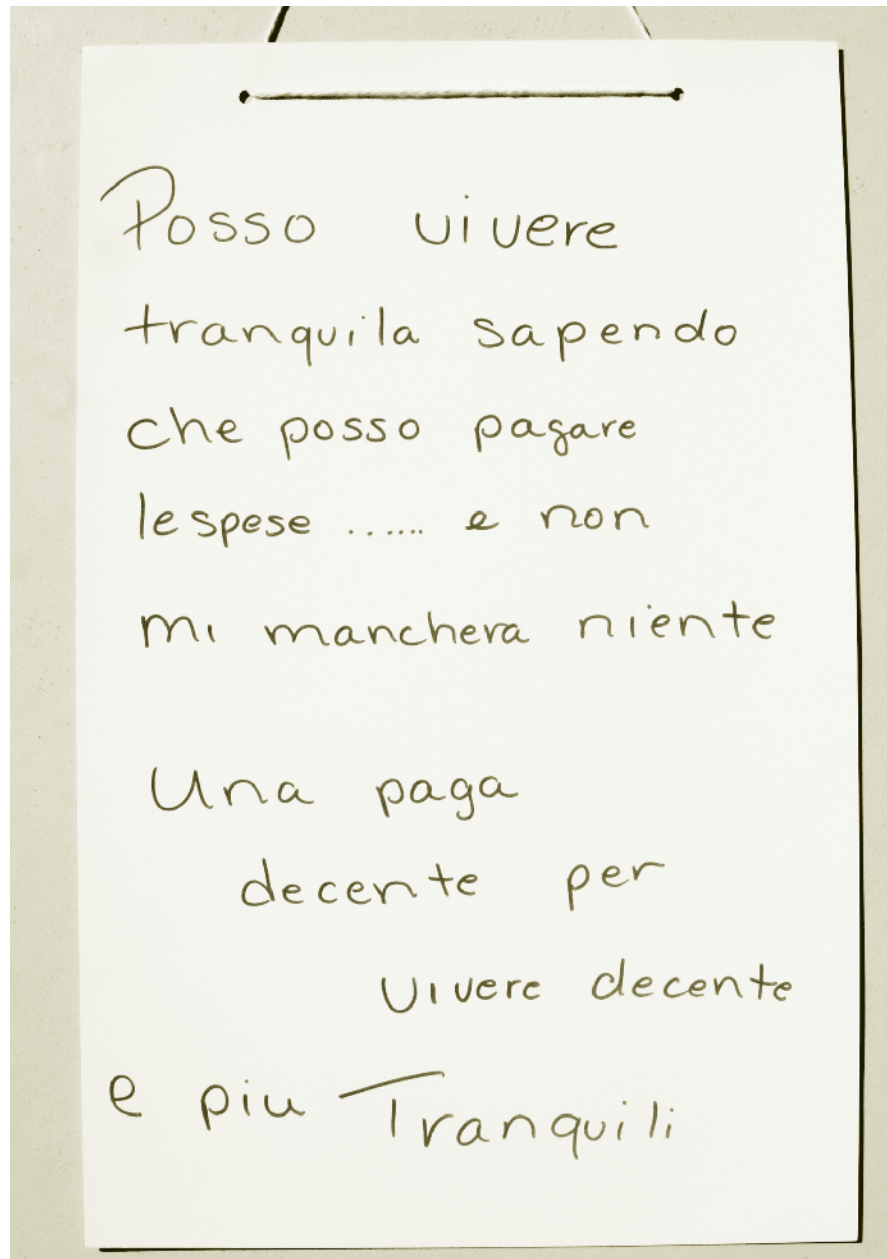 Posso vivere
tranquila sapendo
che posso pagare
le spese ...... e non
mi manchera niente
Una paga
decente per
vivere decente
e piu Tranquili